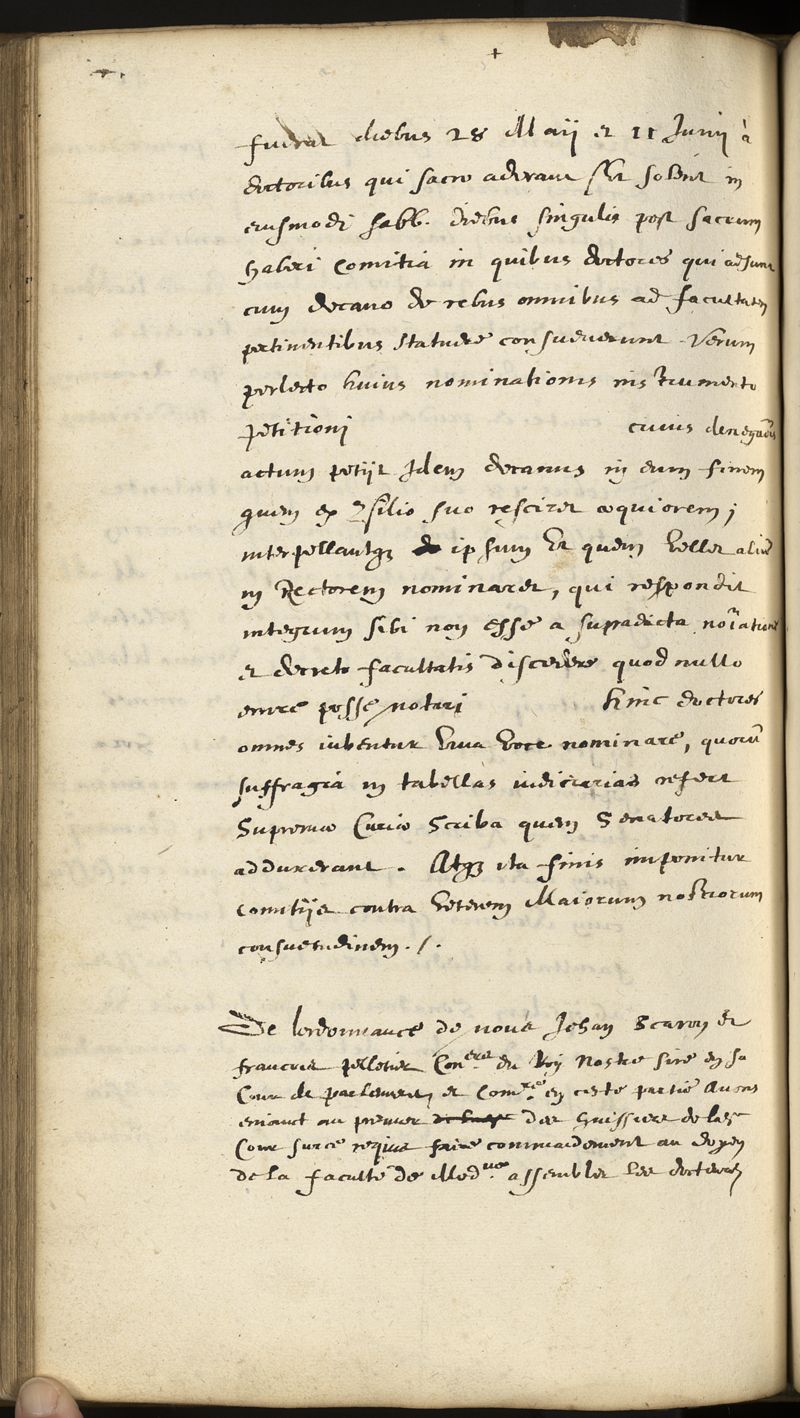 +
fuerat diebus 28 Maij et 11 Junij à
doctoribus qui sacro aderant sicut solent in
eiusmodi sabb. diebus singulis post sacrum
haberi comitia in quibus doctores qui adsunt
cum decano de rebus omnibus ad facultatem
pertinentibus statuere consueuerunt. Verum
perlecto huius nominationis instrumento
petitioni cuius denegatis
actum petijt Idem decanus in eum finem
quem ex 9silio suo resciret aequiorem;
interpellantque ipsum Et quem Vellet alium
in Rectorem nominaret, qui respondit
integrum sibi non esse a supradicta noīatione
et decreto facultatis discedere quod nullo
errore posse notari hinc doctores
omnes iubentur viua voce nominare, quorū
suffragia in tabellas iudiciarias refert
Supremae Curiae Scriba quem Senatores
adduxerant. Atque ita finis imponitur
comitijs contra veterem Maiorum nostrorum
consuetudinem./.
De lordonnance de nous Jehan Scaron et
francois pelletier Coners du Roy Nostre sire en sa
Cour de parlement et Comres en ceste partie Auons
enioinct au premier des huissiers de lad
Cour sur ce requis faire commandement au doyen
de la faculté de Medne assembler les docteurs